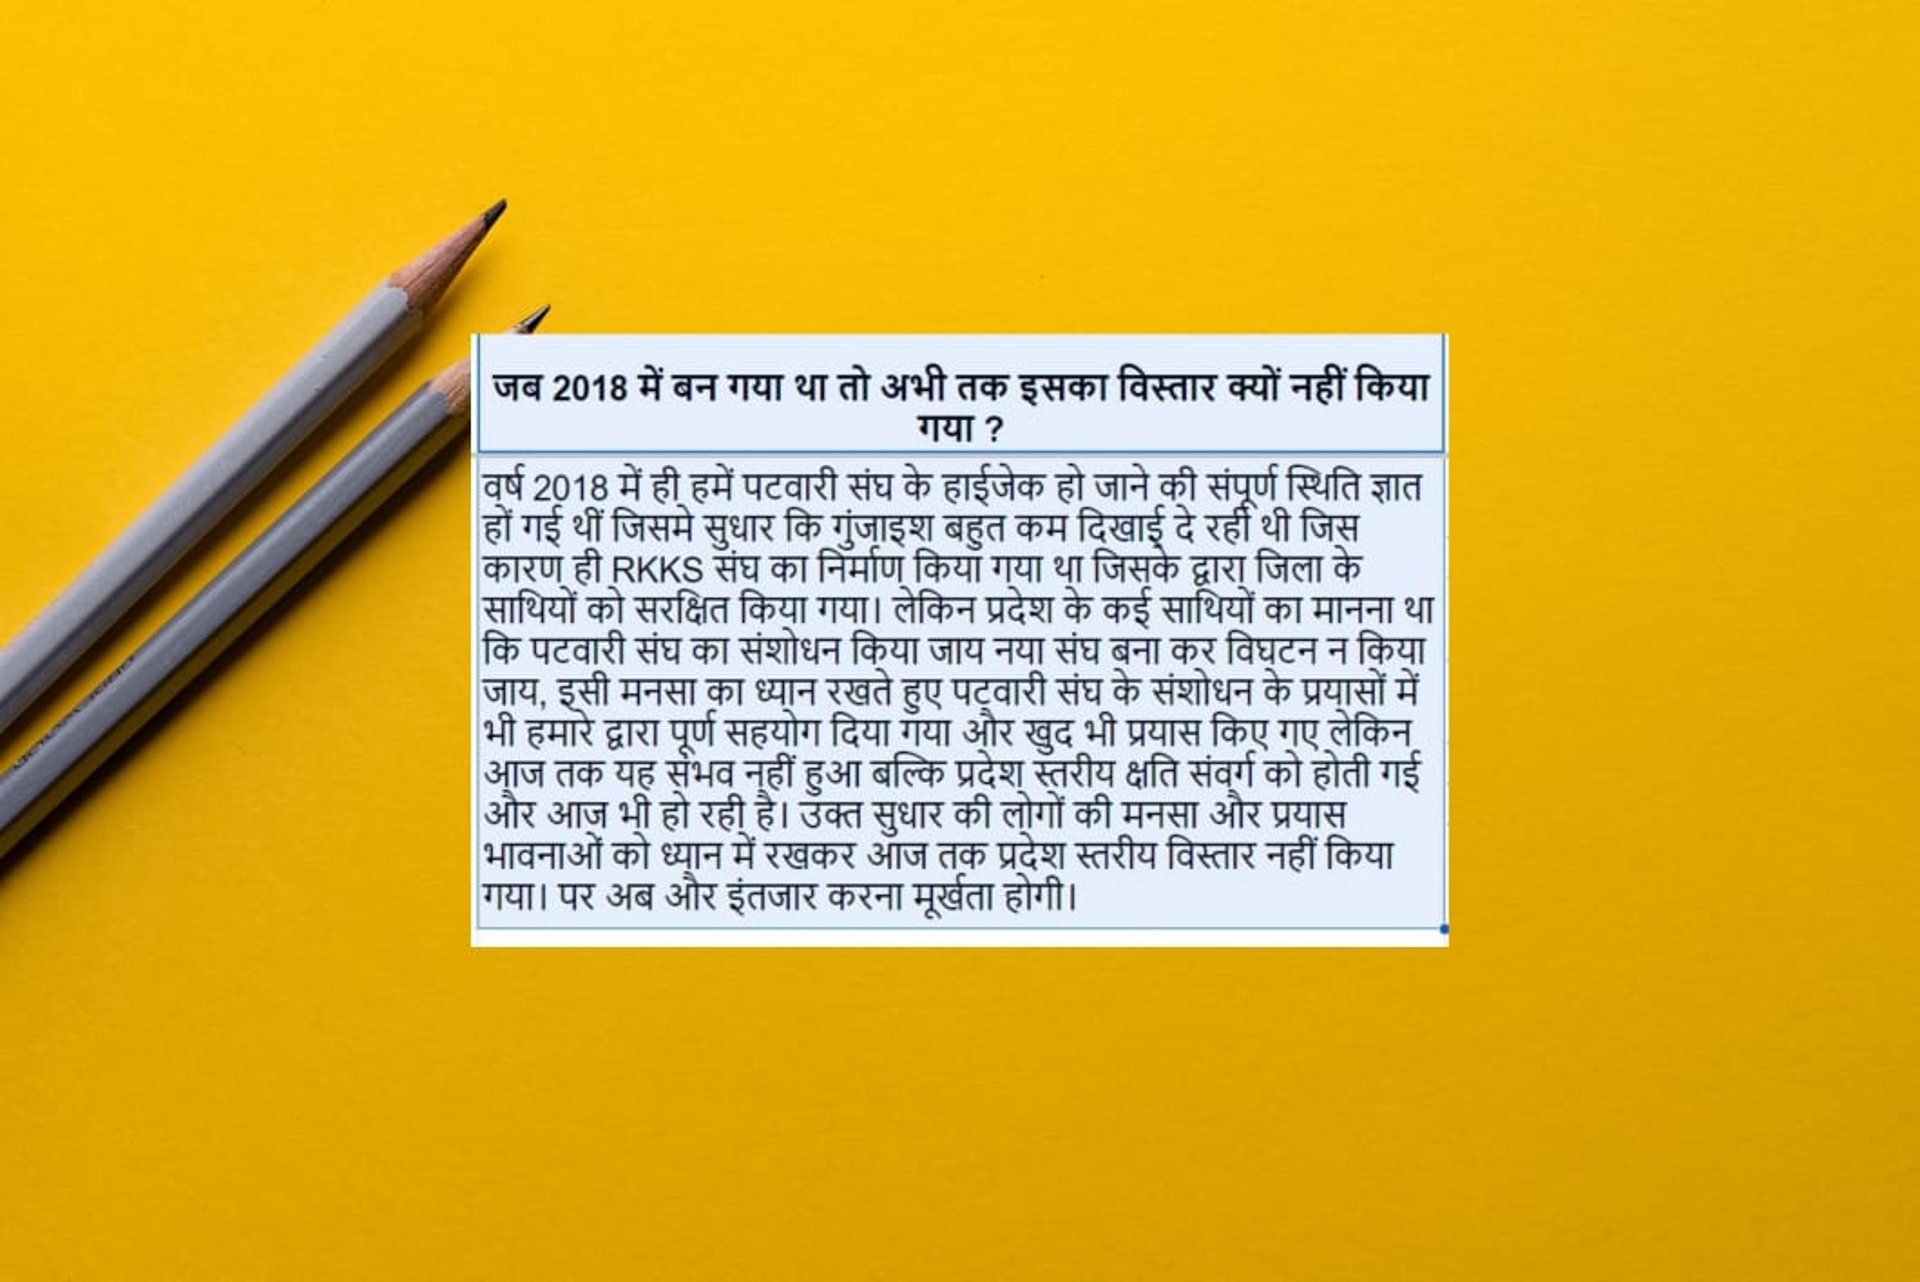 जब 2018 में बन गया था तो अभी तक इसका विस्तार क्यों नहीं किया
गया ?
वर्ष 2018 में ही हमें पटवारी संघ के हाईजेक हो जाने की संपूर्ण स्थिति ज्ञात
हों गई थीं जिसमे सुधार कि गुंजाइश बहुत कम दिखाई दे रही थी जिस
कारण ही RKKS संघ का निर्माण किया गया था जिसके द्वारा जिला के
साथियों को सरक्षित किया गया। लेकिन प्रदेश के कई साथियों का मानना था
कि पटवारी संघ का संशोधन किया जाय नया संघ बना कर विघटन न किया
जाय, इसी मनसा का ध्यान रखते हुए पटवारी संघ के संशोधन के प्रयासों में
भी हमारे द्वारा पूर्ण सहयोग दिया गया और खुद भी प्रयास किए गए लेकिन
आज तक यह संभव नहीं हुआ बल्कि प्रदेश स्तरीय क्षति संवर्ग को होती गई
और आज भी हो रही है। उक्त सुधार की लोगों की मनसा और प्रयास
भावनाओं को ध्यान में रखकर आज तक प्रदेश स्तरीय विस्तार नहीं किया
गया। पर अब और इंतजार करना मूर्खता होगी।